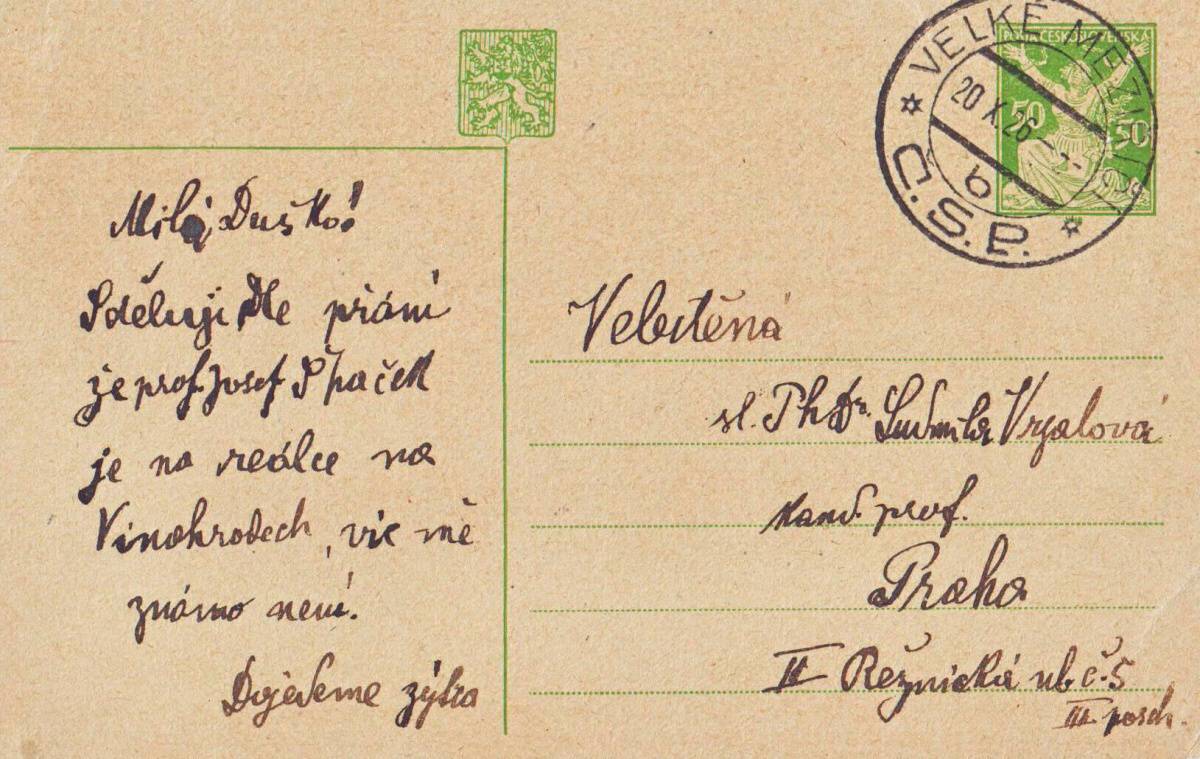 POŠTA ČESKOSLOVENSKÁ
50 50
VELKÉ MEZIŘÍČÍ
20 X. 26
b
Č.S.P.
Milá Duško!
Sděluji Dle přání
že prof. Josef Špaček
je na reálce na
Vinohradech, víc mě
známo není.
Dojedeme zýtra
Velectěná
sl. PhDr. Ludmila Vrzalová
kand. prof.
Praha
II Řežnická ul. č. 5
III posch.